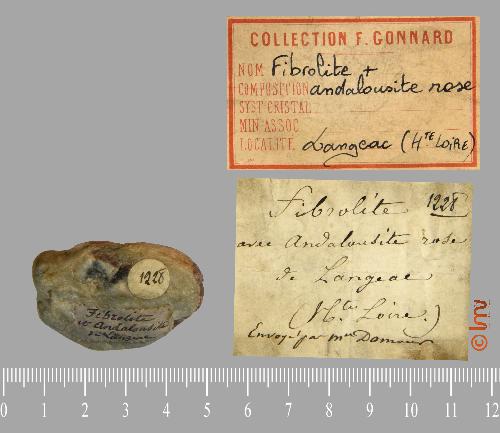 COLLECTION F. GONNARD
NOM Fibrolite +
COMPOSITION andalousite rose
SYST CRISTAL
MIN ASSOC
LOCALITÉ Langeac (Hte LOIRE)
Fibrolite 1228
avec Andalousite rose
de Langeac
(Hte Loire.)
Envoyé par Damour
1228
Fibrolite
et Andalousite
de Langeac
© lmv
0 1 2 3 4 5 6 7 8 9 10 11 12